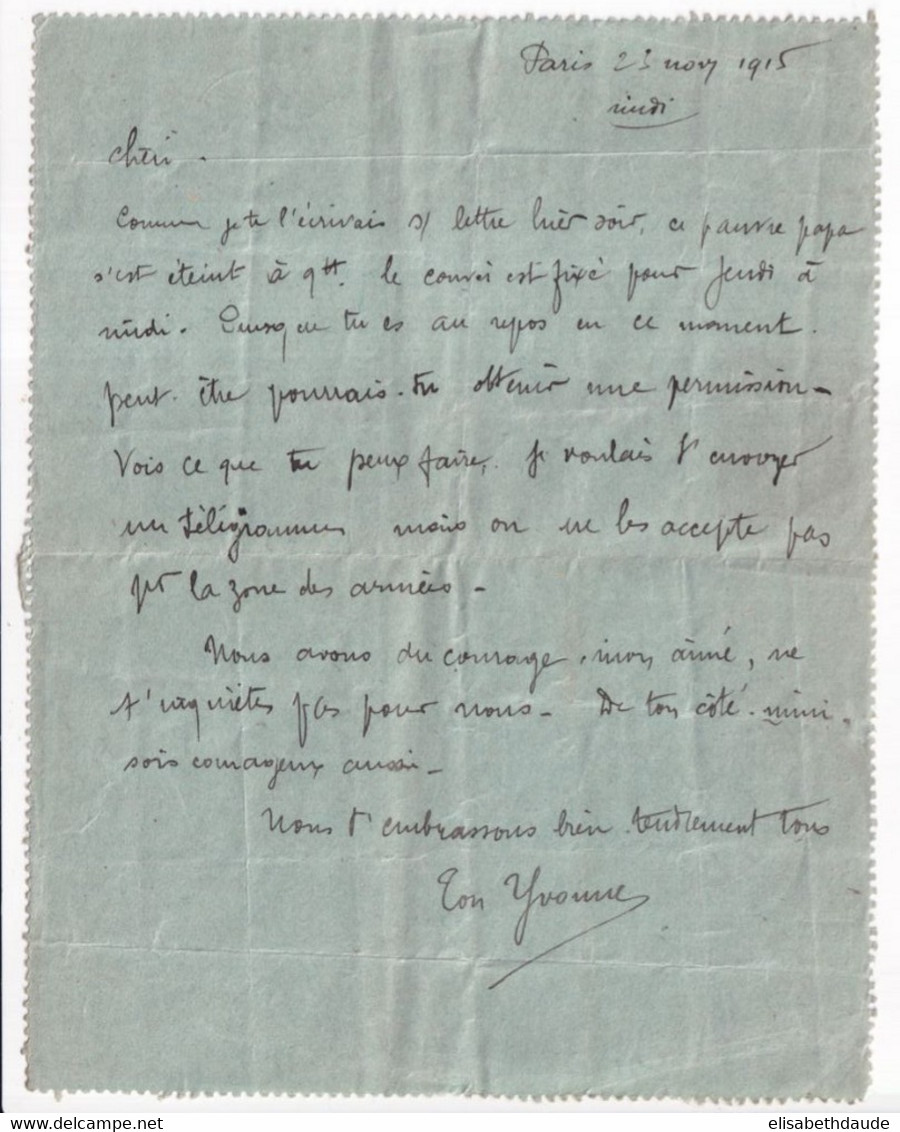 Paris 23 nov 1915
midi
Chéri.
Comme je te l'écrivais s/ lettre hier soir, ce pauvre papa
s'est éteint à 9H. le convoi est fixé pour Jeudi à
midi. Puisque tu es au repos en ce moment.
peut-être pourrais-tu obtenir une permission -
Vois ce que tu peux faire, Je voulais t'envoyer
un télégramme mais on ne les accepte pas
pr la zone des armées -
Nous avons du courage, mon aimé, ne
t'inquiètes pas pour nous - De ton côté mimi.
sois courageux aussi -
Nous t'embrassons bien tendrement tous
Ton Yvonne
elisabethdaude